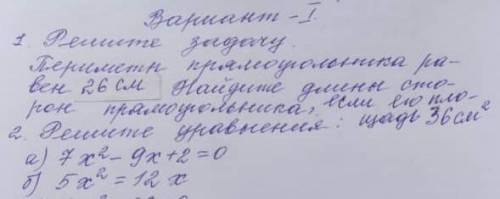 Вариант-I.
1. Решите задачу.
Периметн прямоугольника ра-
вен 26 см Найдите длины сто-
рон прямоугольника, если его пло-
2. Решите уравнения: щадь 36 см²
а) 7x² - 9x + 2 = 0
б) 5x² = 12x